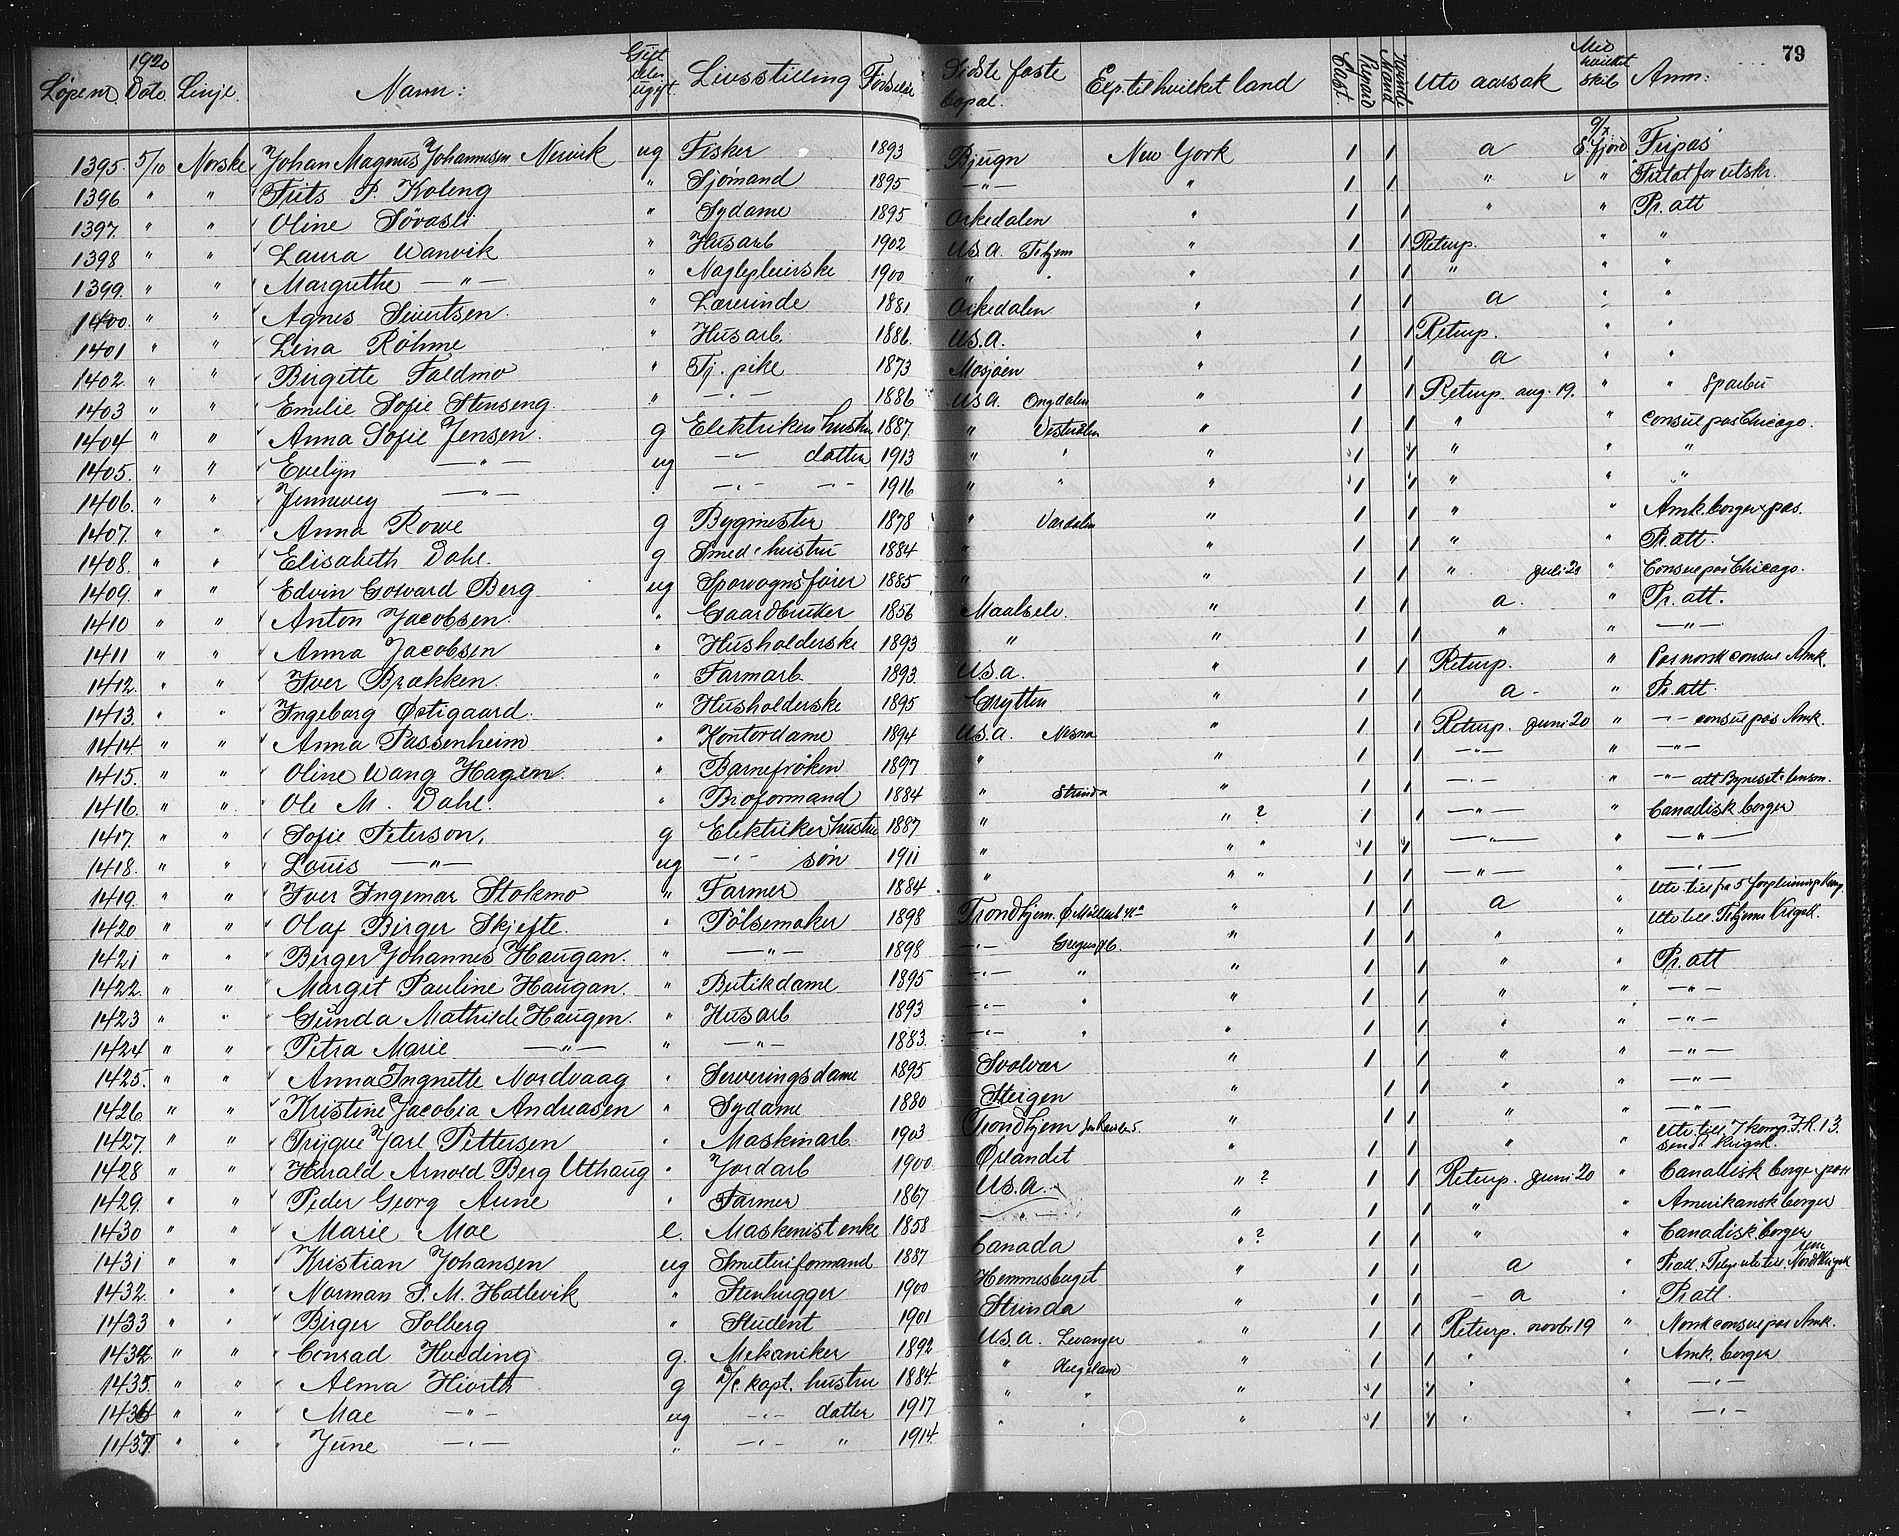 79
1920
Løpenr. Dato Linje. Navn: Gift eller ugift. Livsstilling Fødselsaar Sidste faste bopæl. Exp. til hvilket land Bast. By Mand Kvinde Utv aarsak Med hvilket skib Anm:
1395 5/10 Norske Johan Magnus Johannesen Nervik ug Fisker 1893 Bjugn New York 1 1 a 9/x S. fjord Fripas
1396 " " Frits P. Koleng " Sjømand 1895 —"— " 1 1 " " Tillat fra utskr.
1397. " " Oline Søvasli " Sydame 1895 Orkedalen " 1 1 " " Pr. att
1398 " " Laura Wanvik " Husarb 1902 U.S.A. Trhjem " 1 1 Returp. " "
1399. " " Margrethe —"— " Naglepleierske 1900 " " " 1 1 " " "
1400. " " Agnes Sivertsen. " Lærerinde 1881 Orkedalen " 1 1 a " "
1401 " " Lina Røhme " Husarb. 1886. U.S.A. " 1 1 Returp. " "
1402. " " Birgitte Faldmo " Tj. pike 1873 Mosjøen " 1 1 a " "
1403 " " Emilie Sofie Stenseng. " —"— 1886 U.S.A. Ongdalen " 1 1 Returp aug. 19. " " Sparbu
1404 " " Anna Sofie Jensen. g Elektrikers hustru 1887 " Vesteraalen " 1 1 " " Consul pas Chicago.
1405. " " Evelyn —"— ug —"— datter 1913 " " " 1 1 " " "
1406. " " Jennevey —"— " —"— —"— 1916 " " " 1 1 " "
1407. " " Anna Rowe g Bygmester 1878 " Værdalen " 1 1 " " Amk. borger pas.
1408. " " Elisabeth Dahl. g Smed hustru 1884 " " 1 1 " " Pr. att.
1409. " " Edvin Gotvard Berg ug Sporvognsfører 1885 " " 1 1 " juli 20 " Consul pas Chicago.
1410 " " Anton Jacobsen. " Gaardbruker 1856 Maalselv. " 1 1 a. " Pr. att.
1411 " " Anna Jacobsen " Husholderske 1893 " " 1 1 " " —"—
1412. " " Iver Brækken. " Farmarb. 1893 U.S.A. " 1 1 Returp. " Pas norsk consul Amk.
1413. " " Ingeborg Østigaard. " Husholderske 1895 Grytten " 1 1 a - " Pr. att.
1414 " " Anna Passenheim " Kontordame 1894 U.S.A. Nesna " 1 1 Returp. juni 20 " —"— consul pas Amk.
1415. " " Oline Wang Hagen. " Barnefrøken 1897 " " 1 1 —"— " —"—
1416. " " Ole M. Dahl. " Broformand 1884 " Strinda " 1 1 —"— " —"— att Byneset lensm.
1417. " " Sofie Peterson, g Elektriker hustru 1887 " " ? 1 1 —"— " Canadisk borger
1418. " " Louis —"— ug —"— søn 1911 " " " 1 1 —"— " —"—
1419. " " Iver Ingemar Stokmo " Farmer 1884. " " " 1 1 —"— —"—
1420 " " Olaf Birger Skjefte. " Pølsemaker 1898 Trondhjem. Ø Møllenb. 41a " 1 1 a " Utv. till fra 5 forpleiningskomp
1421 " " Birger Johannes Haugan. " —"— 1898 —"— " 1 1 " " Utv. till. Trhjems Krigsk.
1422. " " Margit Pauline Haugan. " Butikdame 1895 —"— " " 1 1 " Pr. att
1423 " " Gunda Mathilde Haugen. " Husarb 1893 —"— " " 1 1 " " —"—
1424 " " Petra Marie —"— " —"— 1883. —"— " " 1 1 " " —"—
1425. " " Anna Ingnette Nordvaag " Serveringsdame 1895 Svolvær " 1 1 " " —"—
1426 " " Kristine Jacobia Andreasen " Sydame 1880 Steigen " 1 1 " " —"—
1427. " " Trygve Jarl Pettersen " Maskinarb. 1903 Trondhjem " 1 1 " " —"—
1428 " " Harald Arnold Berg Uthaug " Jordarb 1900 Ørlandet " 1 1 " " Utv. till 7 komp. I.R. 13.
1429. " " Peder Georg Aune " Farmer 1867 U.S.A. " ? 1 1 Returp. juni 20 " Canadisk borger pas
1430 " " Marie Moe e. Maskinist enke 1858 —"— " 1 1 " " Amerikansk borger
1431 " " Kristian Johansen ug Smelteriformand 1887 Canada " ? 1 1 " " Canadisk borger
1432. " " Norman S. M. Hallevik " Stenhugger 1900 Hemnesberget " 1 1 a " Pr att.
1433 " " Birger Solberg " Student 1901 Strinda " 1 1 a " Pr. att
1434. " " Conrad Hveding g. Mekaniker 1892 U.S.A. Levanger " 1 1 Returp. novbr 19 " Norsk consul pas Amk.
1435. " " Alma Hiorth g kapt. hustru 1884 " Helgeland " 1 1 " " Amk. borger
1436 " " Mae —"— ug —"— datter 1917 " " " 1 1 " —"—
1437 " " June —"— " —"— " 1914 " " " 1 1 " " —"—